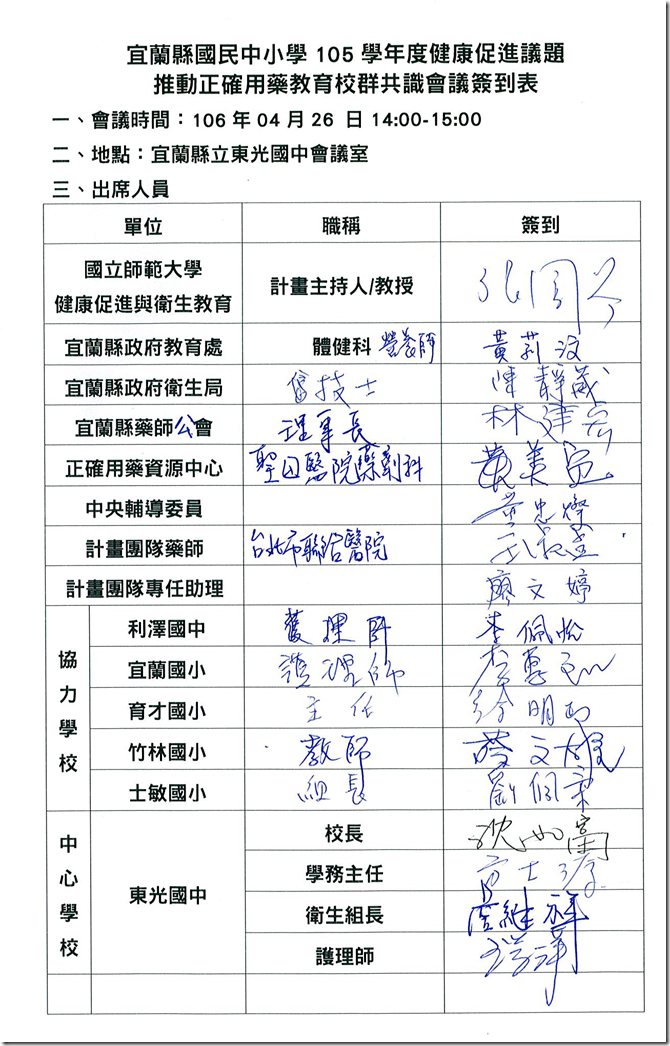 宜蘭縣國民中小學 105 學年度健康促進議題
推動正確用藥教育校群共識會議簽到表
一、會議時間：106 年 04 月 26 日 14:00-15:00
二、地點：宜蘭縣立東光國中會議室
三、出席人員
單位 職稱 簽到
國立師範大學
健康促進與衛生教育 計畫主持人/教授
宜蘭縣政府教育處 體健科 營養師 黃莉汶
宜蘭縣政府衛生局 技士 陳靜葳
宜蘭縣藥師公會 理事長 林建
正確用藥資源中心 聖母醫院藥劑科 黃美
中央輔導委員 黃忠燦
計畫團隊藥師 台北市聯合醫院
計畫團隊專任助理 廖文婷
協力學校
利澤國中 護理師 李佩
宜蘭國小 護理師
育才國小 主任 徐明
竹林國小 教師 蔡文雄
士敏國小 組長 劉佩
中心學校
東光國中
校長
學務主任
衛生組長 繼祥
護理師